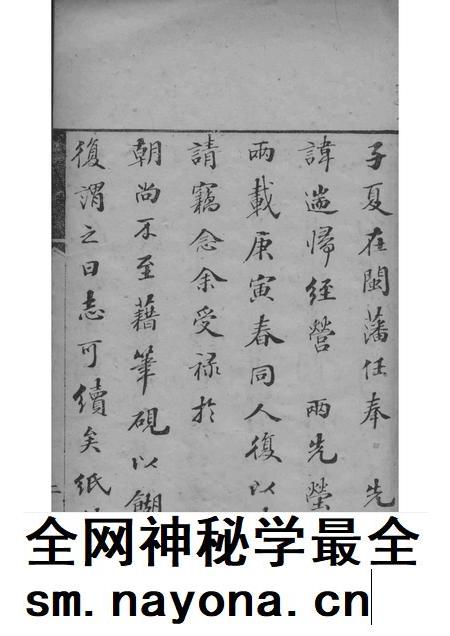 子夏在閩藩任奉　先
諱遄歸經營　兩先塋
兩載庚寅春同人復以
請竊念余受祿於
朝尚不至藉筆硯以餬
復謂之曰志可續矣紙
二
全网神秘学最全
sm.nayona.cn